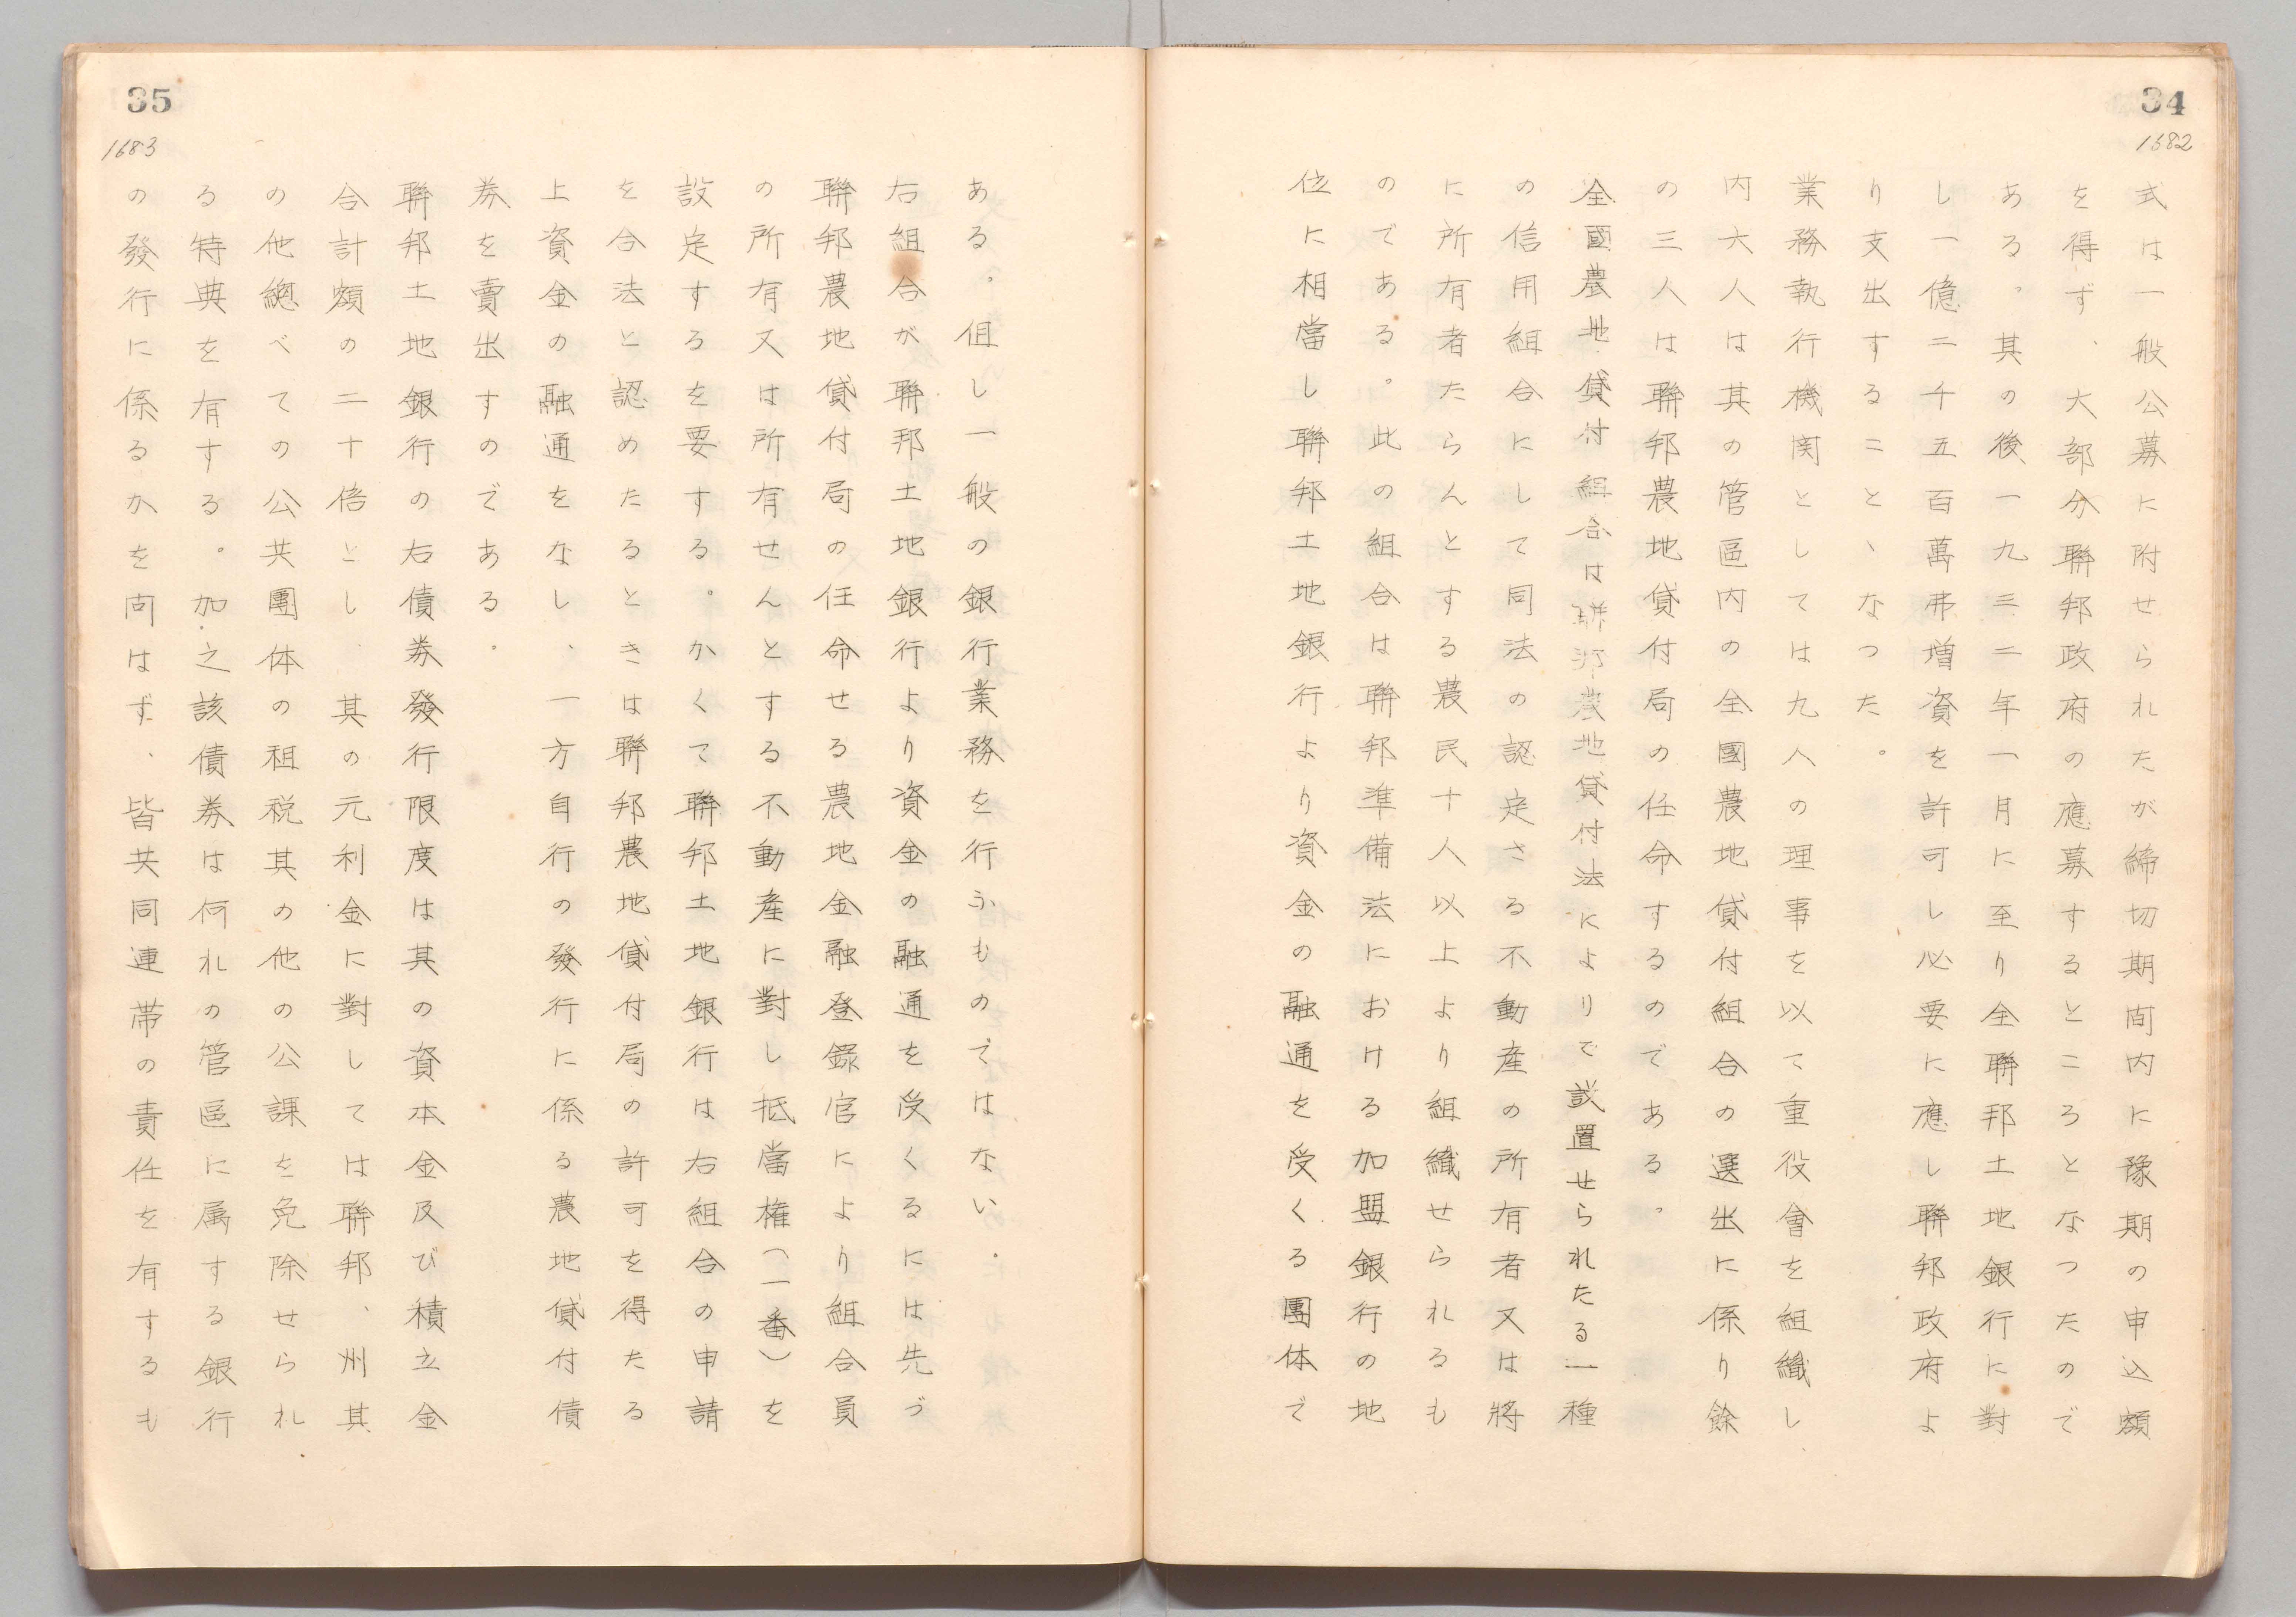 34
1682
式は一般公募に附せられたが締切期間内に豫期の申込額
を得ず、大部分聯邦政府の應募するところとなつたので
ある。其の後一九三二年一月に至り全聯邦土地銀行に對
し一億二千五百萬弗増資を許可し必要に應し聯邦政府よ
り支出すること、なつた。
業務執行機関としては九人の理事を以て重役會を組織し
内六人は其の管區内の全國農地貸付組合の選出に係り餘
の三人は聯邦農地貸付局の任命するのである。
全國農地貸付組合は聯邦農地貸付法によりで設置せられたる一種
の信用組合にして同法の認定さる不動産の所有者又は將
に所有者たらんとする農民十人以上より組織せられるも
のである。此の組合は聯邦準備法における加盟銀行の地
位に相當し聯邦土地銀行より資金の融通を受くる團体で
35
1683
ある。但し一般の銀行業務を行ふものではない。
右組合が聯邦土地銀行より資金の融通を受くるには先づ
聯邦農地貸付局の任命せる農地金融登録官により組合員
の所有又は所有せんとする不動産に對し抵當権(一番)を
設定するを要する。かくて聯邦土地銀行は右組合の申請
を合法と認めたるときは聯邦農地貸付局の許可を得たる
上資金の融通をなし、一方自行の發行に係る農地貸付債
券を賣出すのである。
聯邦土地銀行の右債券發行限度は其の資本金及び積立金
合計額の二十倍とし、其の元利金に對しては聯邦、州其
の他總べての公共團体の租税其の他の公課を免除せられ
る特典を有する。加之該債券は何れの管區に属する銀行
の發行に係るかを问はず、皆共同連帯の責任を有するも